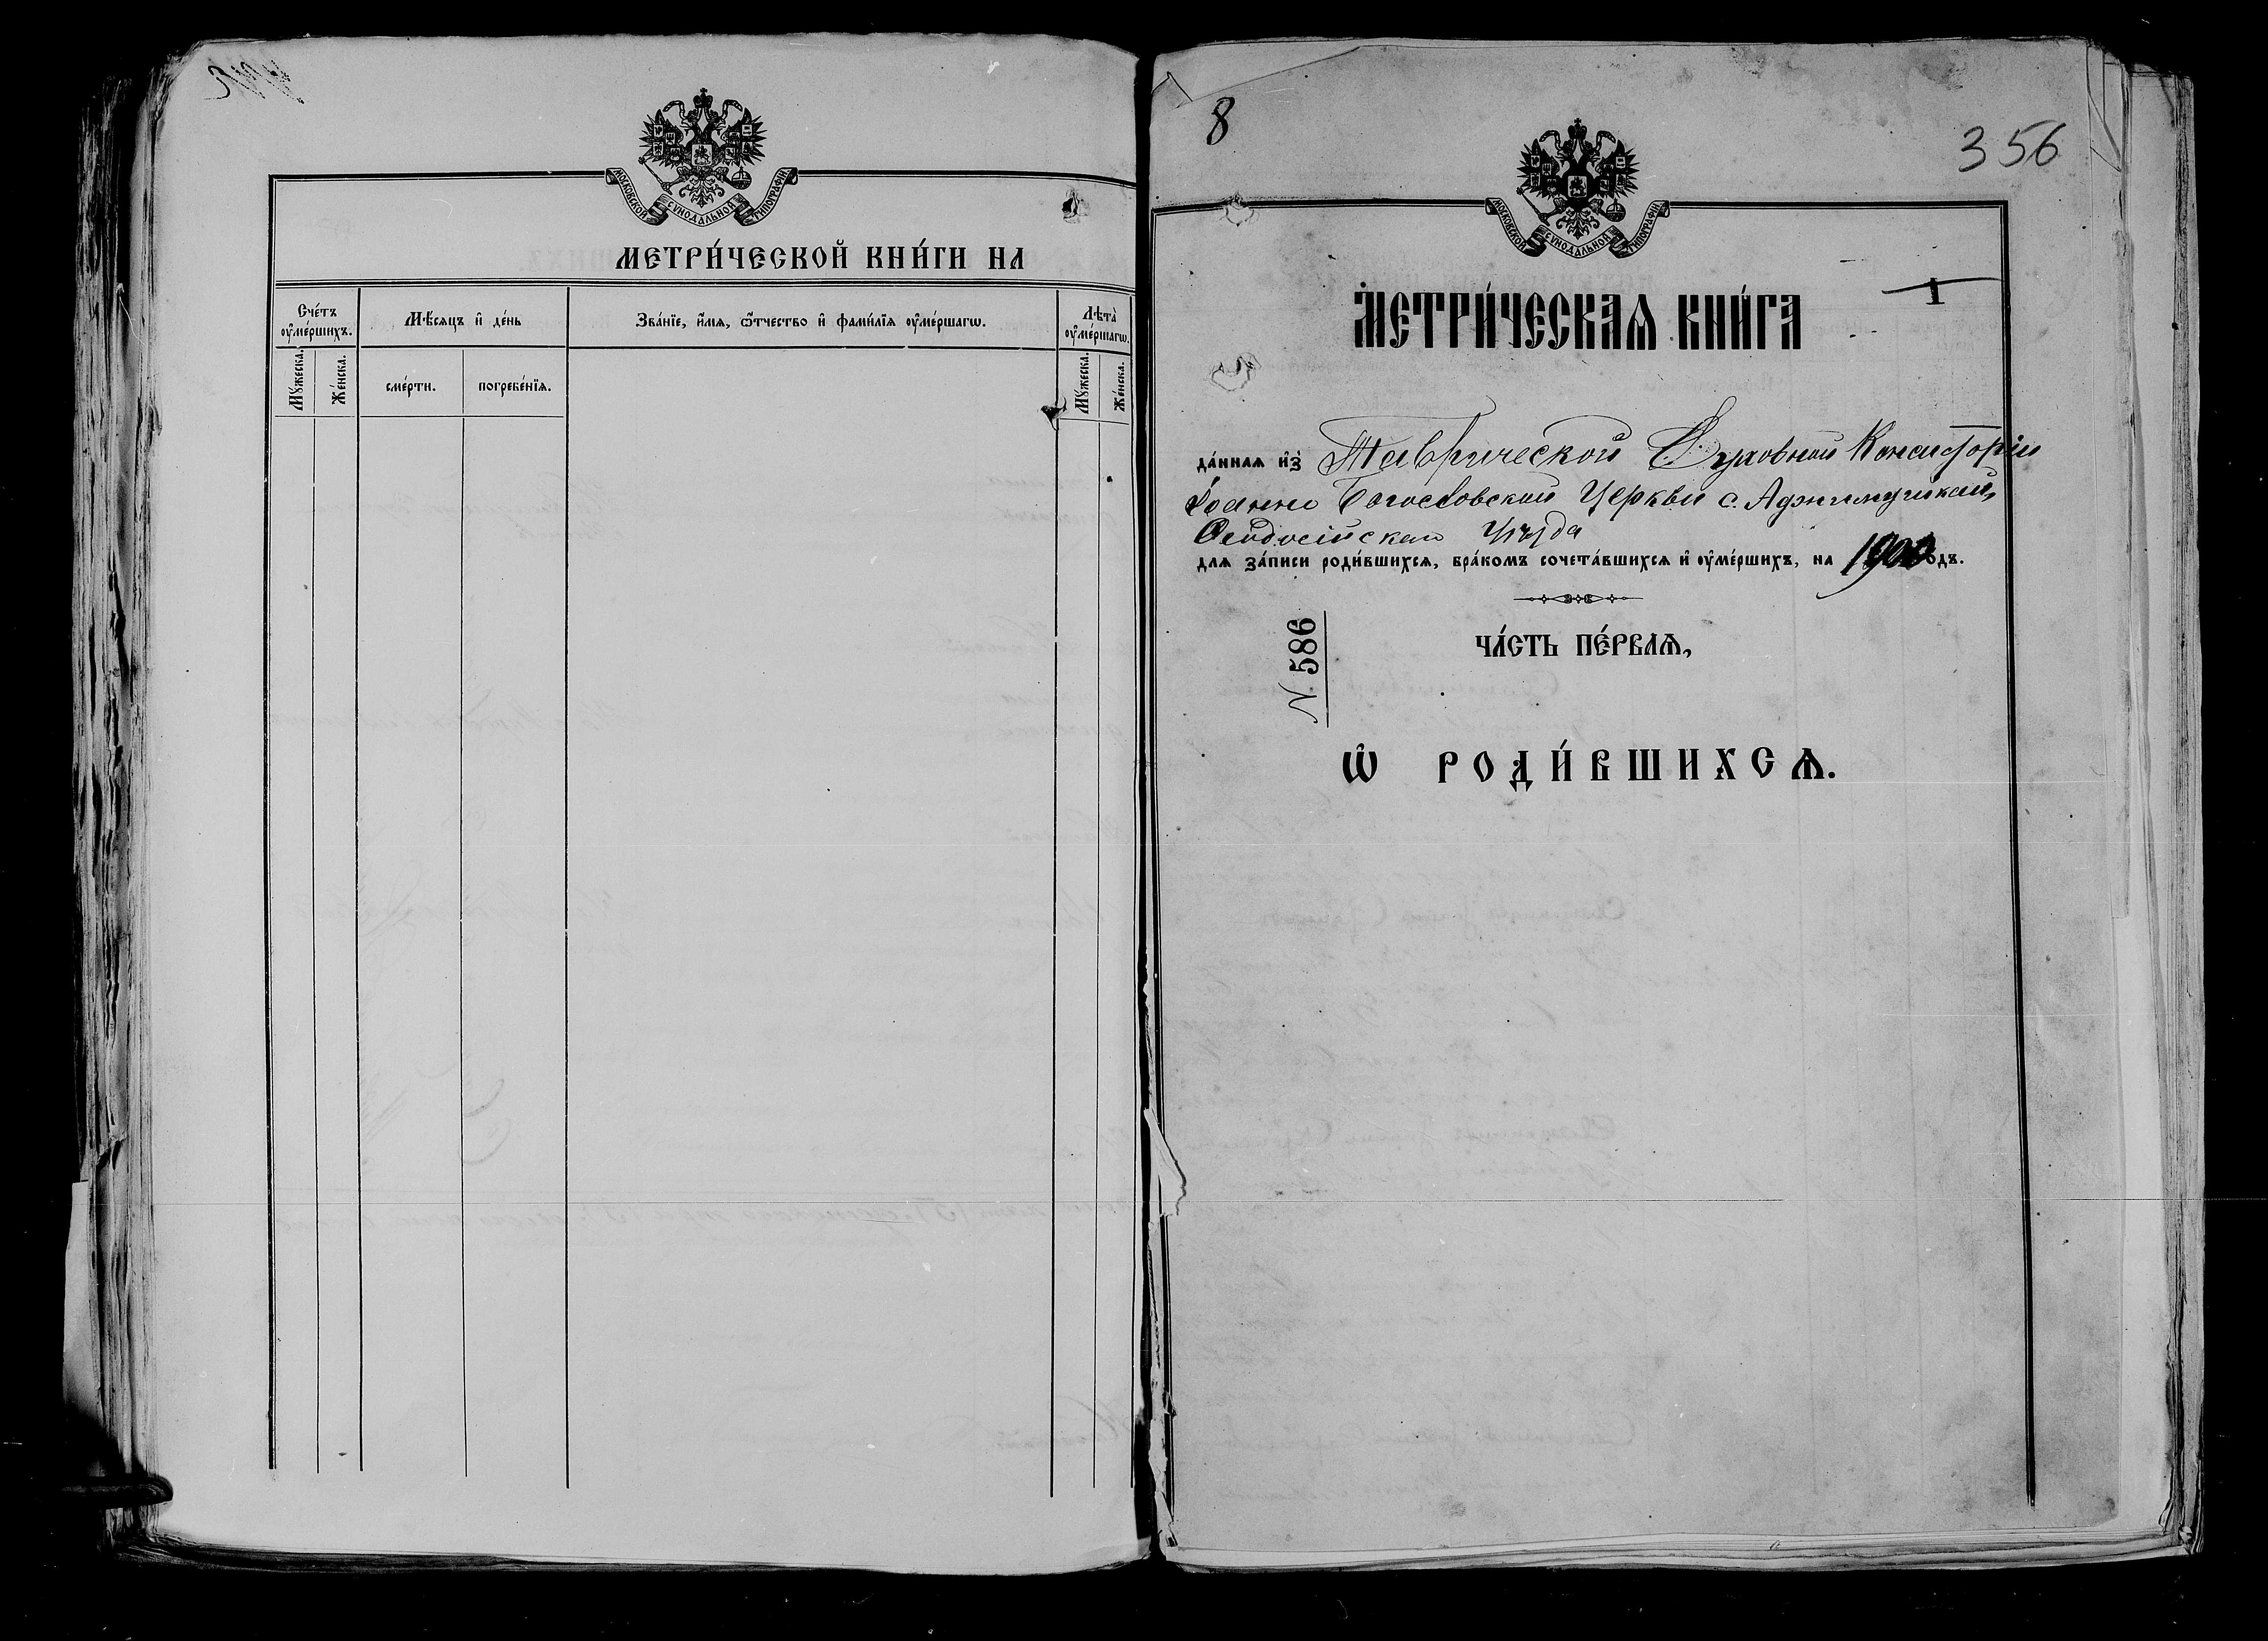 МОСКОВСКОЙ СѴНОДАЛЬНОЙ ТИПОГРАФІИ
МЕТРИ́ЧЕСКОЙ КНИ́ГИ НА
Сче́тъ оу҆ме́ршихъ.
Мѣ́сяцъ и҆ де́нь
Зва́нїе, и҆́мя, ѻ҆́тчество и҆ фами́лїя оу҆ме́ршагѡ.
Лѣта̀ оу҆ме́ршагѡ.
Мꙋ́жеска.
Же́нска.
сме́рти.
погребе́нїя.
Мꙋ́жеска.
Же́нска.
8
356
МОСКОВСКОЙ СѴНОДАЛЬНОЙ ТИПОГРАФІИ
1
МЕТРИ́ЧЕСКАѦ КНИ́ГА
да́ннаѧ и҆зъ Таврической Духовной Консисторіи
Іоанно Богословской Церкви с. Аджимушкай,
Ѳеодосійскаго Уѣзда
для за́писи роди́вшихсѧ, бра́комъ сочета́вшихсѧ и҆ оу҆ме́ршихъ, на 1900 годъ.
N. 586
ЧА́СТЬ ПЕ́РВАѦ,
Ѡ҆ РОДИ́ВШИХСѦ.